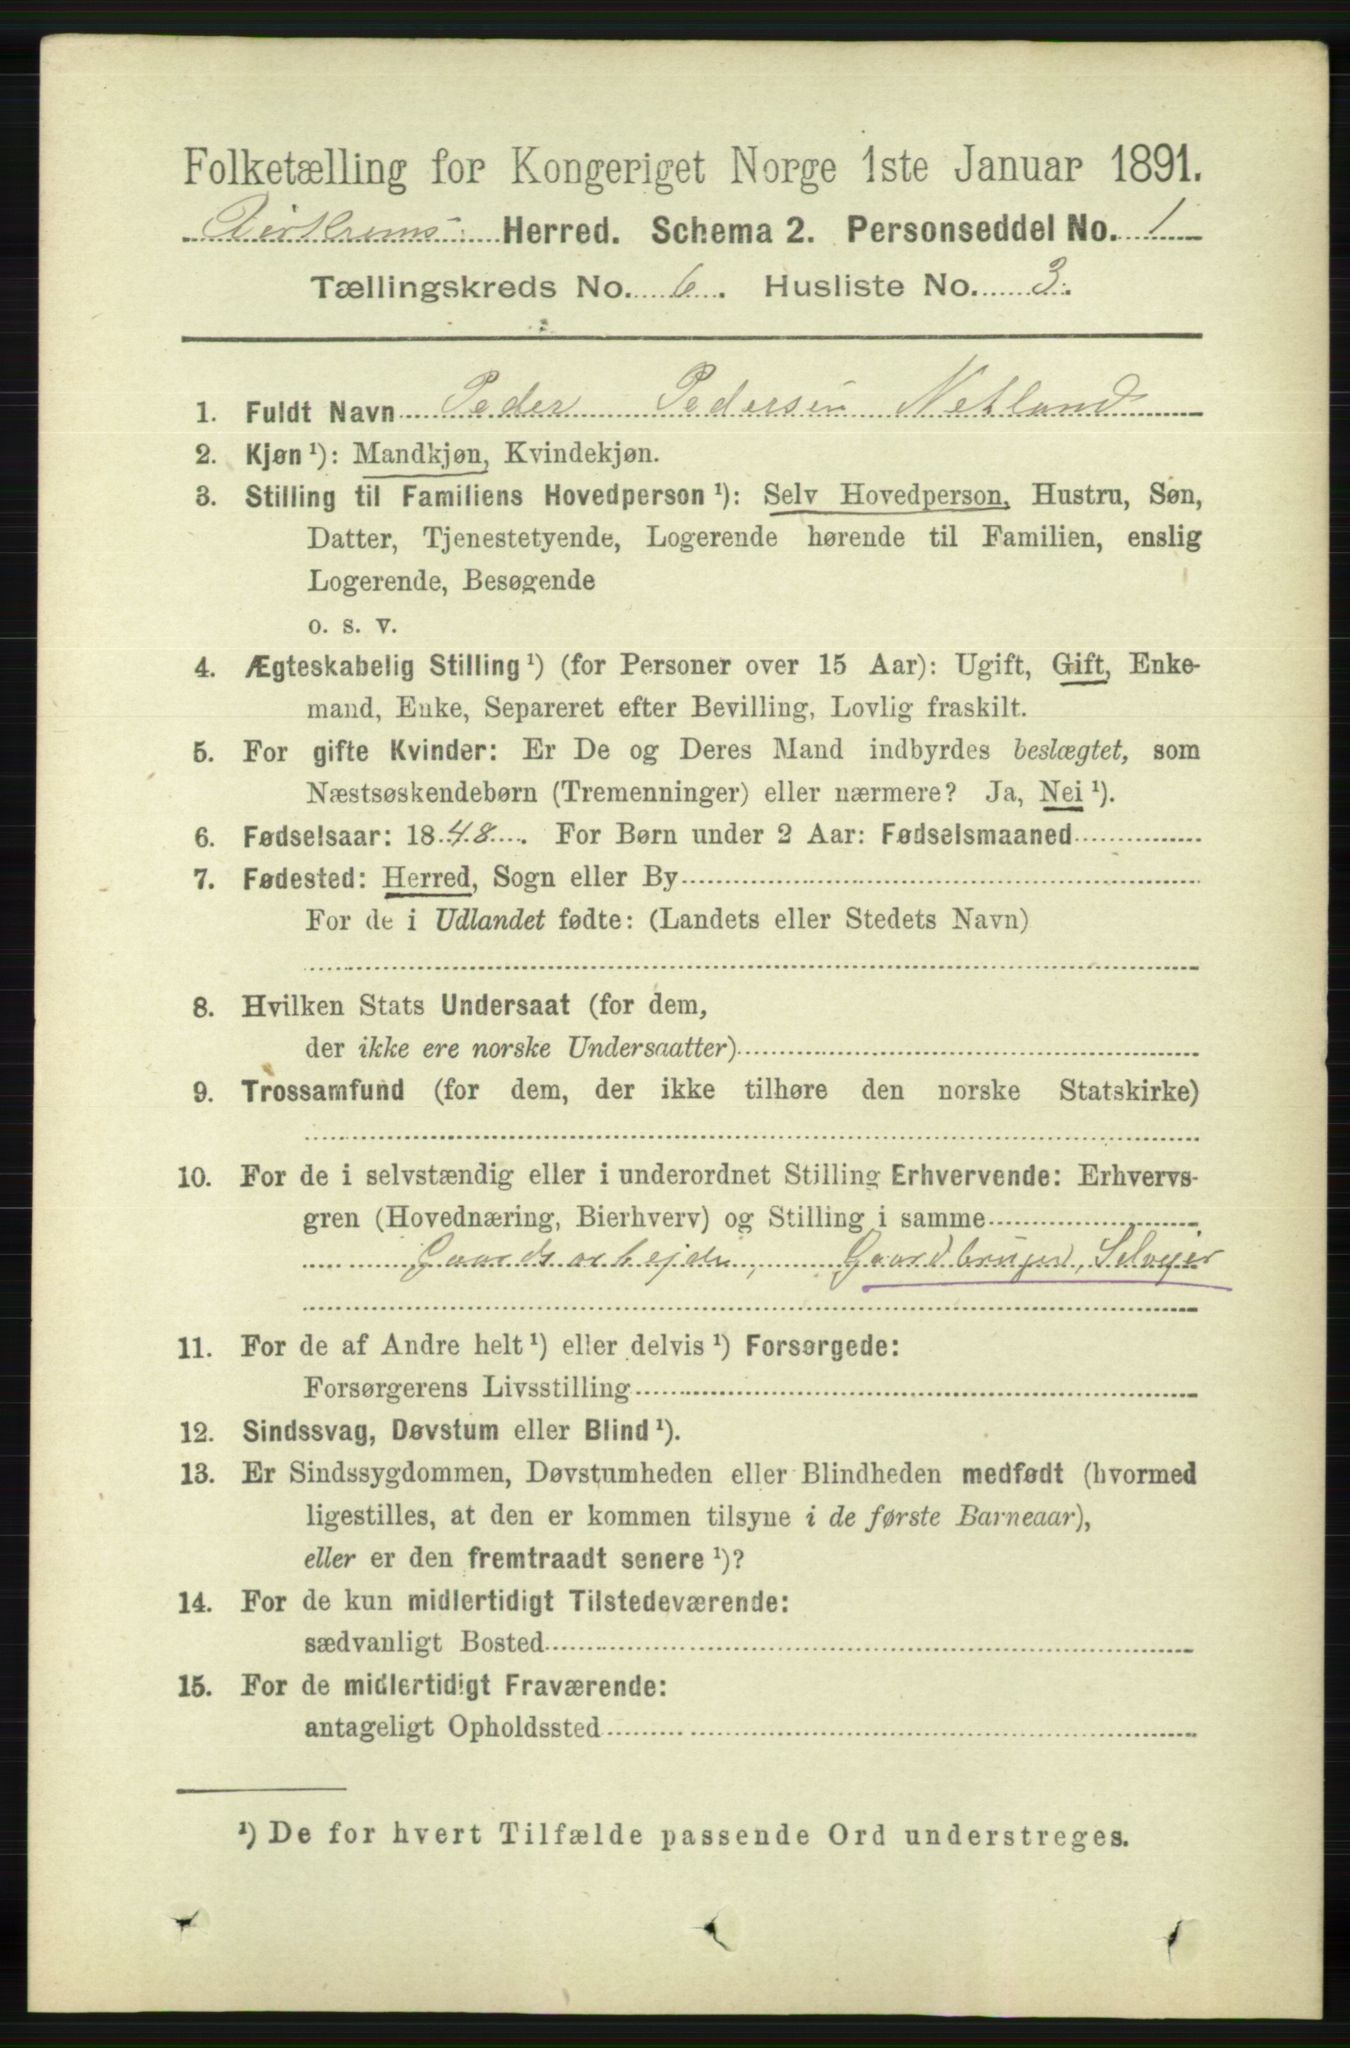 Folketælling for Kongeriget Norge 1ste Januar 1891.
Birkrems Herred. Schema 2. Personseddel No. 1
Tællingskreds No. 6. Husliste No. 3.
1. Fuldt Navn Peder Pedersen Netland
2. Kjøn ¹): Mandkjøn, Kvindekjøn.
3. Stilling til Familiens Hovedperson ¹): Selv Hovedperson, Hustru, Søn,
Datter, Tjenestetyende, Logerende hørende til Familien, enslig
Logerende, Besøgende
o. s. v.
4. Ægteskabelig Stilling ¹) (for Personer over 15 Aar): Ugift, Gift, Enke-
mand, Enke, Separeret efter Bevilling, Lovlig fraskilt.
5. For gifte Kvinder: Er De og Deres Mand indbyrdes beslægtet, som
Næstsøskendebørn (Tremenninger) eller nærmere? Ja, Nei ¹).
6. Fødselsaar: 1848. For Børn under 2 Aar: Fødselsmaaned
7. Fødested: Herred, Sogn eller By
For de i Udlandet fødte: (Landets eller Stedets Navn)
8. Hvilken Stats Undersaat (for dem,
der ikke ere norske Undersaatter)
9. Trossamfund (for dem, der ikke tilhøre den norske Statskirke)
10. For de i selvstændig eller i underordnet Stilling Erhvervende: Erhvervs-
gren (Hovednæring, Bierhverv) og Stilling i samme
Gaardsarbejde, Gaardbruger, Selvejer
11. For de af Andre helt ¹) eller delvis ¹) Forsørgede:
Forsørgerens Livsstilling
12. Sindssvag, Døvstum eller Blind ¹).
13. Er Sindssygdommen, Døvstumheden eller Blindheden medfødt (hvormed
ligestilles, at den er kommen tilsyne i de første Barneaar),
eller er den fremtraadt senere ¹)?
14. For de kun midlertidigt Tilstedeværende:
sædvanligt Bosted
15. For de midlertidigt Fraværende:
antageligt Opholdssted
¹) De for hvert Tilfælde passende Ord understreges.